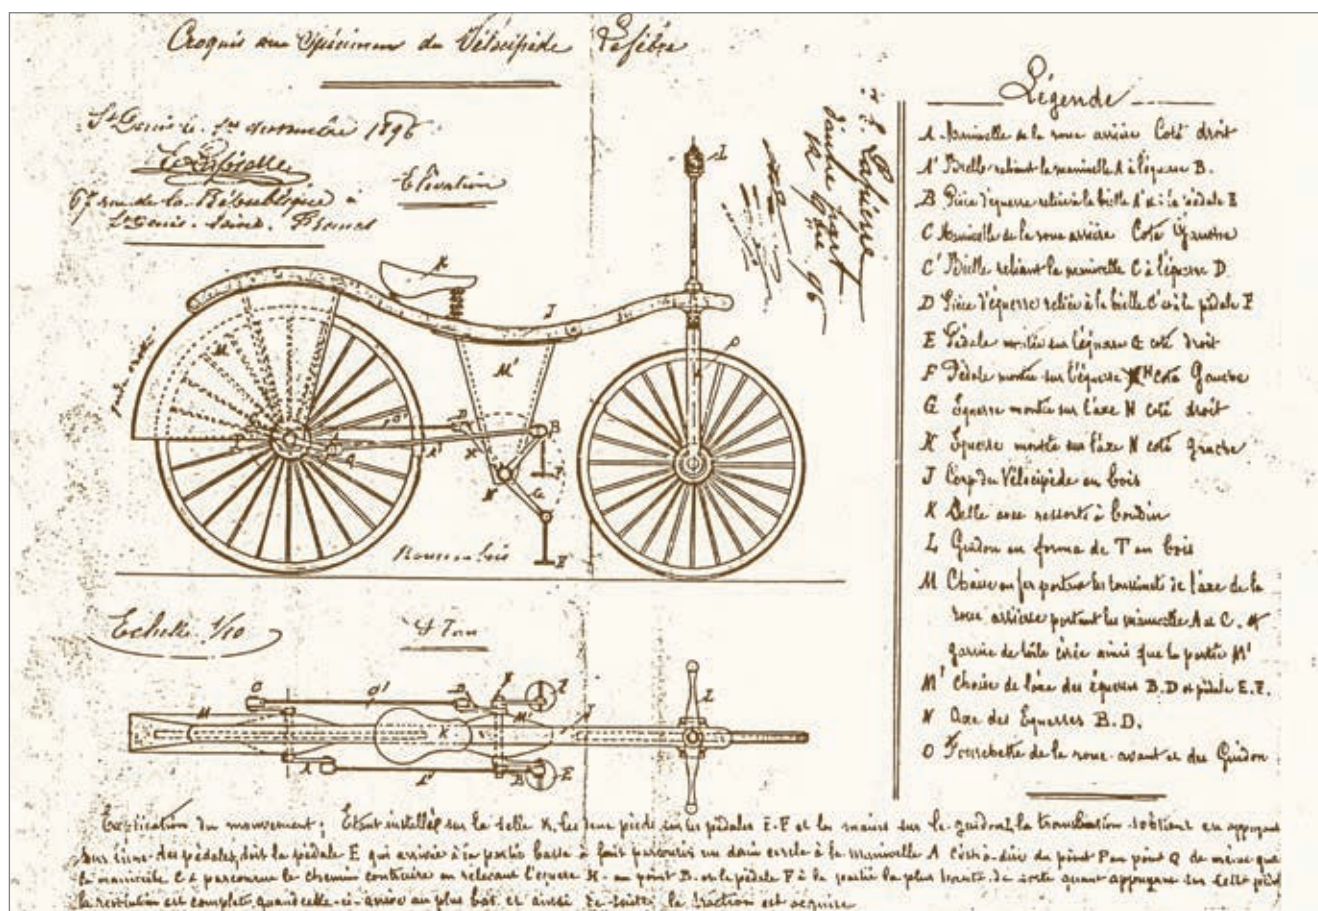 Croquis au Spécimen du Vélocipède Lefèbre
St Denis le 1er 1896
E Labiolle
67 rue de la République à
St Denis. Seine. France
Elévation
d'autre part
96
K
J
I
M
M'
P
D
B
A'
N
G
E
Roues en bois
Echelle 1/10
Plan
Légende
A Manivelle de la roue arrière Coté droit
A' Bielle reliant la manivelle A à l'équerre B.
B Pièce d'équerre reliée à la bielle A' et à la pédale E
C Manivelle de la roue arrière Coté Gauche
C' Bielle reliant la manivelle C à l'équerre D
D Pièce d'équerre reliée à la bielle C' et à la pédale F
E Pédale montée sur l'équerre G coté droit
F Pédale montée sur l'équerre H coté Gauche
G Equerre montée sur l'axe N coté droit
H Equerre montée sur l'axe N coté gauche
J Corp du Vélocipède en bois
K Selle avec ressorts à boudin
L Guidon en forme de T en bois
M Chasse en fer portant les coussinets de l'axe de la
roue arrière portant les manivelle A et C. et
garnie de toile cirée ainsi que la partie M'
M' Chasse de l'axe des équerres B.D et pédale E.F.
N Axe des Equerres B.D.
O Fourchette de la roue avant et du Guidon
Explication du mouvement; Etant installé sur la selle K. les deux pieds sur les pédales E-F et les mains sur le guidon L la translation s'obtient en appuyant
sur l'une des pédales, soit la pédale E qui arrivée à la partie basse a fait parcourir un demi cercle à la manivelle A c'est à dire du point P au point Q de même que
la manivelle C a parcouru le chemin contraire en relevant l'équerre H. au point B. et la pédale F à la partie la plus haute. de sorte qu'en appuyant sur cette
la révolution est complète quand celle-ci arrive au plus bas. et ainsi de suite, la traction est acquise